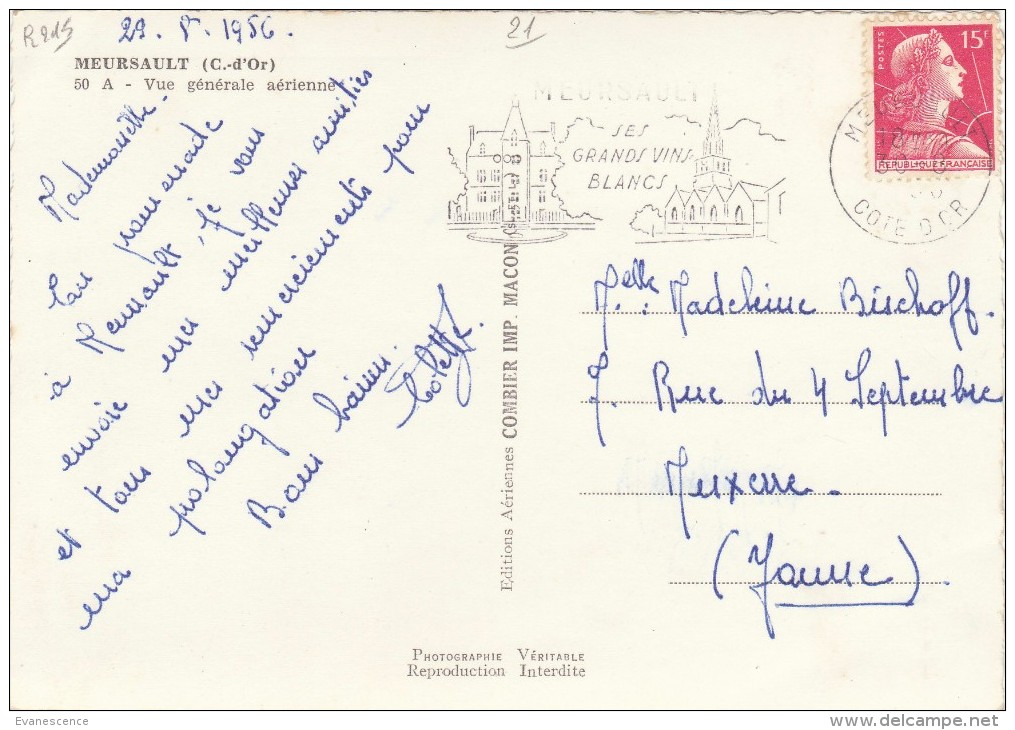 R 215
21
29. 8. 1956.
MEURSAULT (C.-d'Or)
50 A - Vue générale aérienne
Mademoiselle -
En promenade
à Meursault, je vous
envoie mes meilleures amitiés
et tous mes remerciements pour
ma prolongation
Bons baisers.
Colette.
MEURSAULT
SES
GRANDS VINS
BLANCS
POSTES
15F
REPUBLIQUE FRANÇAISE
COTE D'OR
Editions Aériennes COMBIER IMP. MACON
Melle: Madeleine Bischoff.
7. Rue du 4 Septembre
Auxerre.
(Yonne).
PHOTOGRAPHIE VÉRITABLE
Reproduction Interdite
Evanescence
delcampe.net